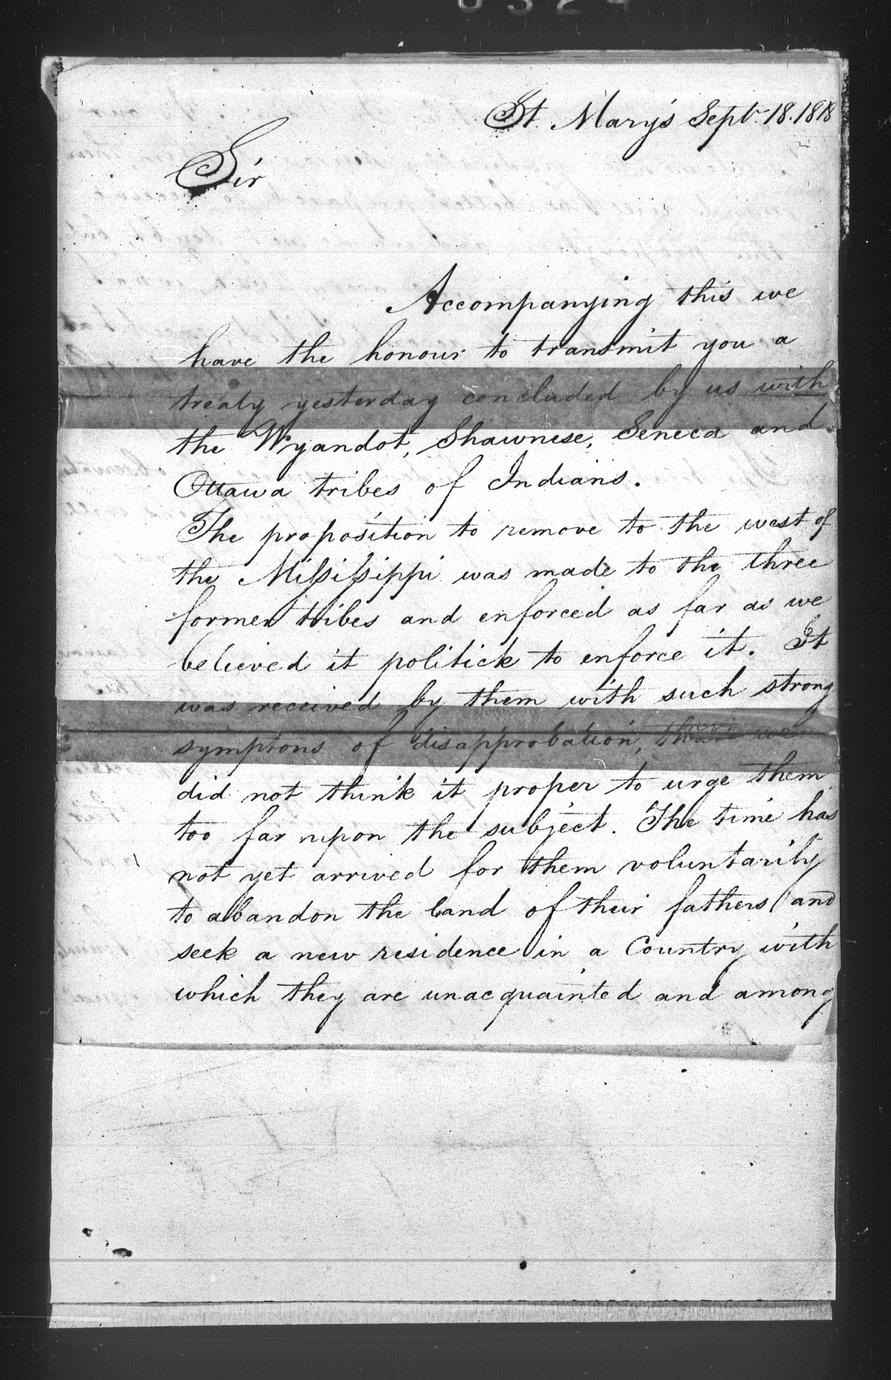 St. Mary's Sept. 18. 1818
Sir
Accompanying this we
have the honour to transmit you a
treaty yesterday concluded by us with
the Wyandot, Shawnese, Seneca and
Ottawa tribes of Indians.
The proposition to remove to the west of
the Mississippi was made to the three
former tribes and enforced as far as we
believed it politick to enforce it. It
was received by them with such strong
symptons of disapprobation, that we
did not think it proper to urge them
too far upon the subject. The time has
not yet arrived for them voluntarily
to abandon the land of their fathers and
seek a new residence in a Country with
which they are unacquainted and among